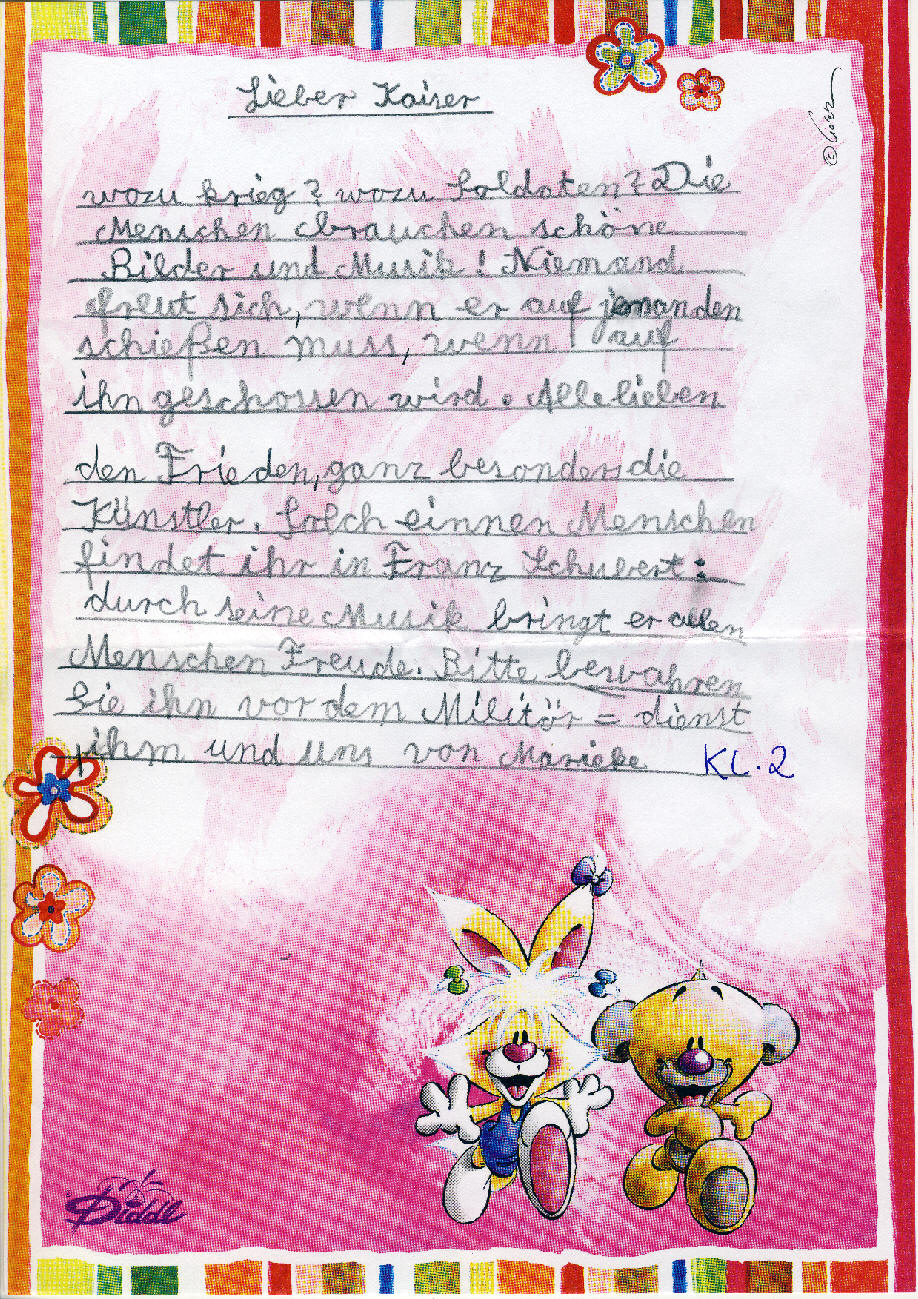 Lieber Kaiser
wozu krieg? wozu Soldaten? Die
Menschen brauchen schöne
Bilder und Musik! Niemand
freut sich, wenn er auf jemanden
schießen muss, wenn auf
ihn geschossen wird. Alle lieben
den Frieden, ganz besonders die
Künstler. Solch einnen Menschen
findet ihr in Franz Schubert:
durch seine Musik bringt er allen
Menschen Freude. Bitte bewahren
Sie ihn vor dem Militär = dienst
ihm und uns von Marieke KL. 2
Diddl